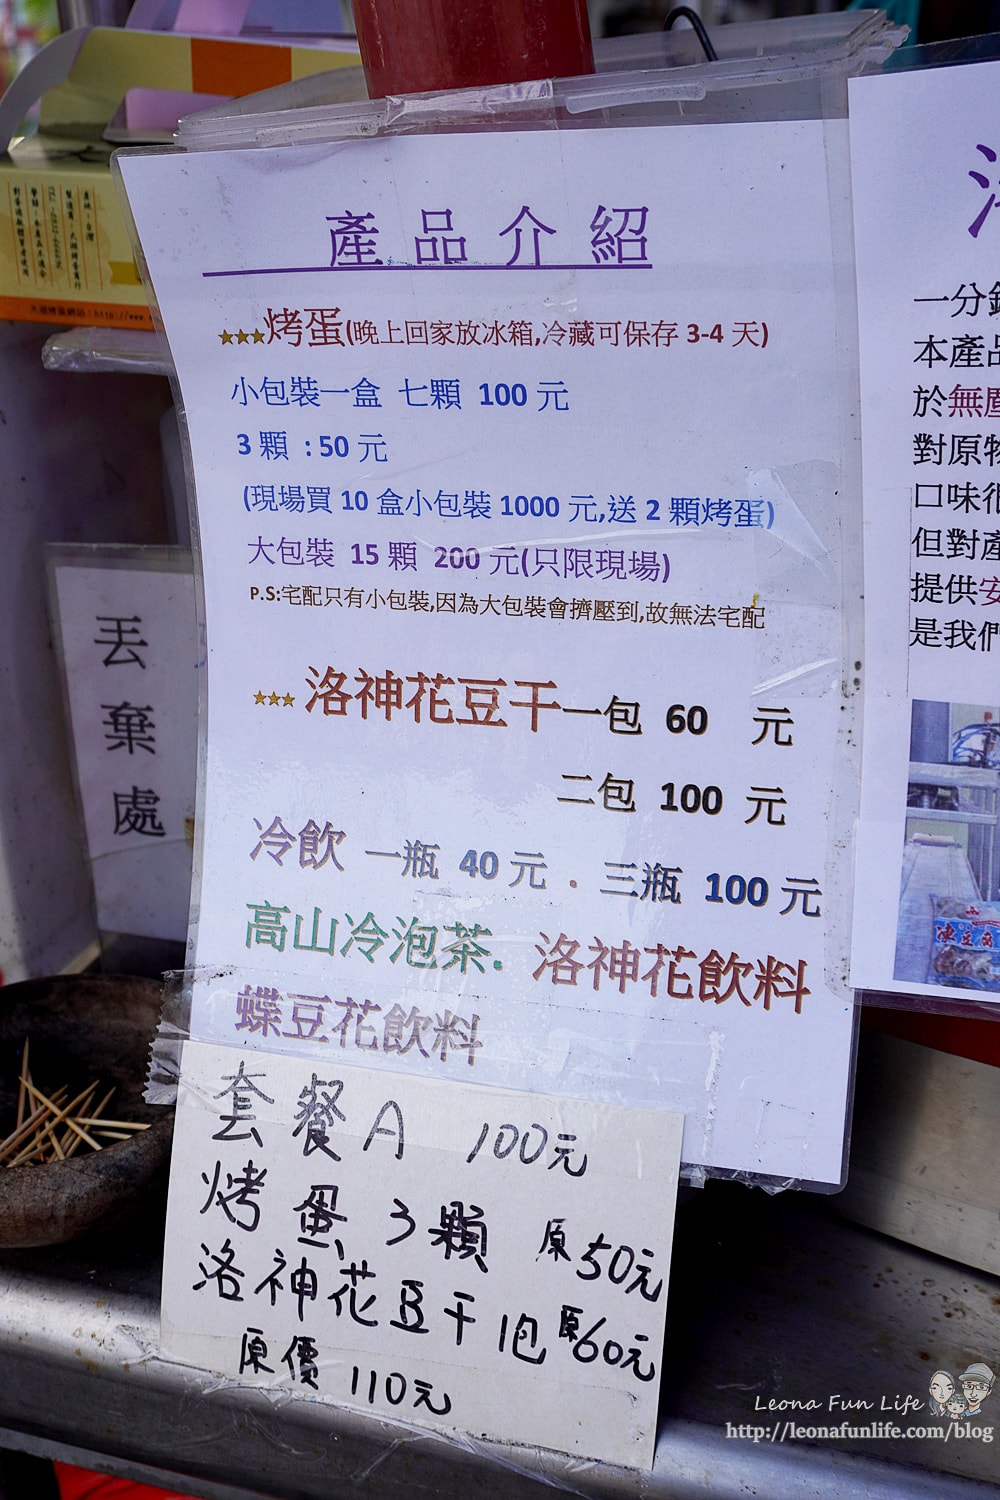 產品介紹
★★★烤蛋(晚上回家放冰箱,冷藏可保存 3-4 天)
小包裝一盒 七顆 100 元
3 顆 : 50 元
(現場買 10 盒小包裝 1000 元,送 2 顆烤蛋)
大包裝 15 顆 200 元(只限現場)
P.S:宅配只有小包裝,因為大包裝會擠壓到,故無法宅配
★★★ 洛神花豆干一包 60 元
二包 100 元
冷飲 一瓶 40 元 . 三瓶 100 元
高山冷泡茶. 洛神花飲料
蝶豆花飲料
套餐A 100元
烤蛋 3顆 原50元
洛神花豆干 1包 原60元
原價 110元
丟棄處
一分錢
本產品
於無塵
對原物
口味很
但對產
提供安
是我們
產地:台灣
大湖烤蛋網站:http://www.
Leona Fun Life
http://leonafunlife.com/blog